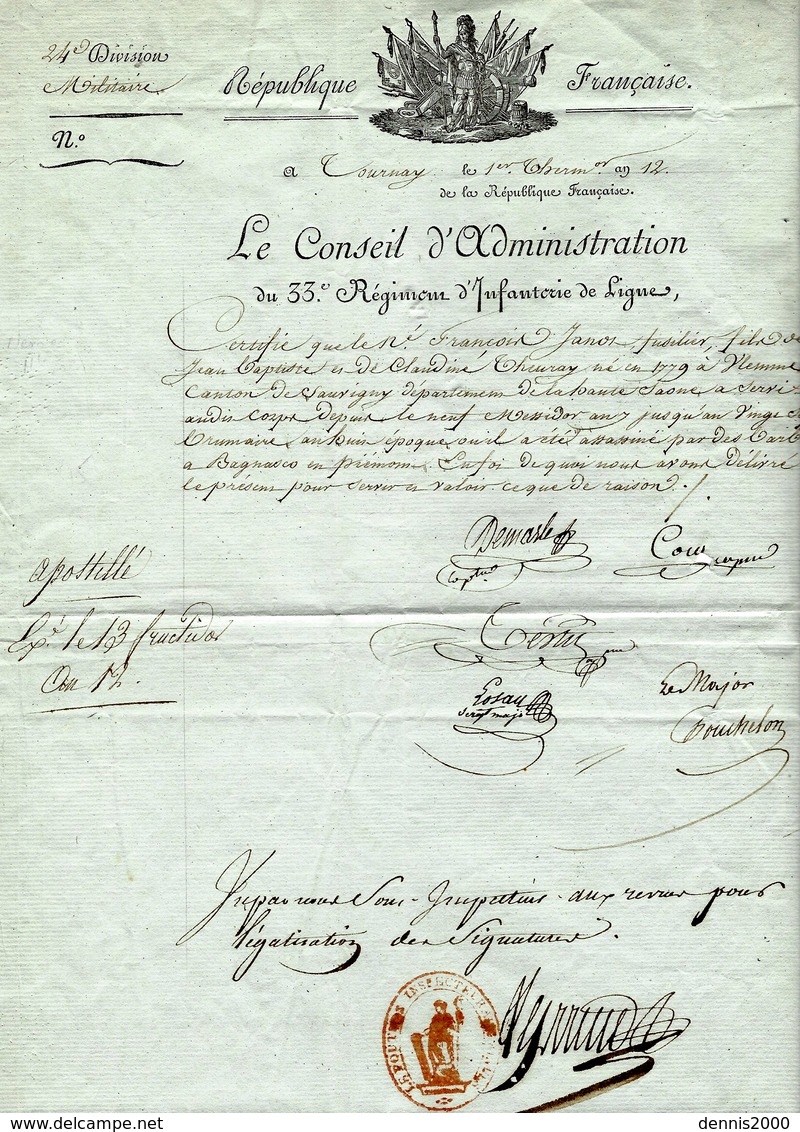 24e Division
Militaire
N.o
République Française.
a Tournay le 1er Thermor an 12.
de la République Française.
Le Conseil d'Administration
du 33.e Régiment d'Infanterie de Ligne,
Certifie que le N.é François Janot, fusilier, fils de
Jean Baptiste et de Claudine Theuray né en 1779 à
canton de Sauvigny département de la haute Saone a servi
audit corps depuis le neuf Messidor an 7 jusqu'au Vingt
brumaire an huit époque où il a été assassiné par des Barb
a Bagnasco en piémont. En foi de quoi nous avons délivré
le présent pour servir et valoir ce que de raison.
Demarle
captne
apostillé
Exé le 13 fructidor
an 12.
Sergt major
Le Major
Pouchelon
Vu par nous Sous-Inspecteur aux revues pour
légalisation des Signatures.
INSPECTEUR
dennis2000